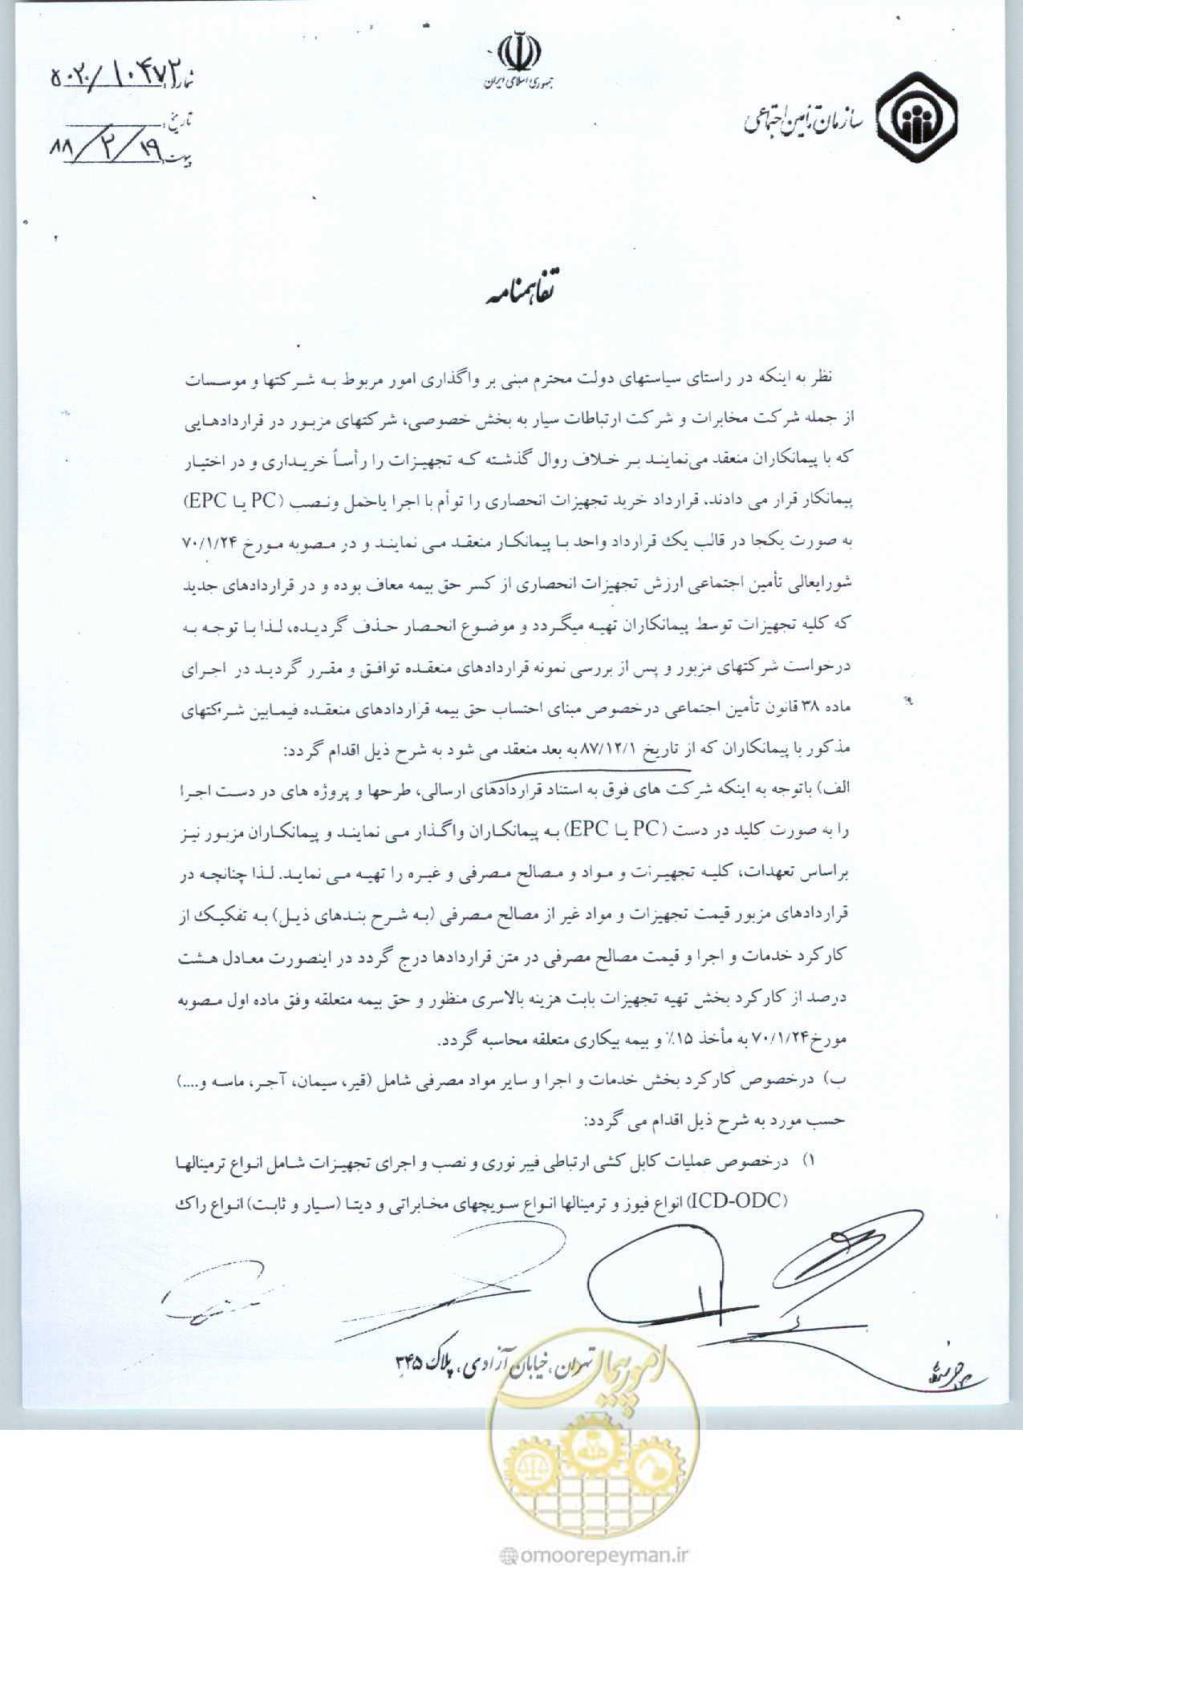 جمهوری اسلامی ایران
سازمان تأمین اجتماعی
شماره: ۵۰۲۰/۱۰۴۷۲
تاریخ:
۸۸/۲/۱۹
پیوست:
تفاهمنامه
نظر به اینکه در راستای سیاستهای دولت محترم مبنی بر واگذاری امور مربوط به شرکتها و موسسات
از جمله شرکت مخابرات و شرکت ارتباطات سیار به بخش خصوصی، شرکتهای مزبور در قراردادهایی
که با پیمانکاران منعقد می‌نمایند بر خلاف روال گذشته که تجهیزات را رأساً خریداری و در اختیار
پیمانکار قرار می دادند، قرارداد خرید تجهیزات انحصاری را توأم با اجرا یاحمل ونصب (PC یا EPC)
به صورت یکجا در قالب یک قرارداد واحد با پیمانکار منعقد می نمایند و در مصوبه مورخ ۷۰/۱/۲۴
شورایعالی تأمین اجتماعی ارزش تجهیزات انحصاری از کسر حق بیمه معاف بوده و در قراردادهای جدید
که کلیه تجهیزات توسط پیمانکاران تهیه میگردد و موضوع انحصار حذف گردیده، لذا با توجه به
درخواست شرکتهای مزبور و پس از بررسی نمونه قراردادهای منعقده توافق و مقرر گردید در اجرای
ماده ۳۸ قانون تأمین اجتماعی درخصوص مبنای احتساب حق بیمه قراردادهای منعقده فیمابین شرکتهای
مذکور با پیمانکاران که از تاریخ ۸۷/۱۲/۱ به بعد منعقد می شود به شرح ذیل اقدام گردد:
الف) باتوجه به اینکه شرکت های فوق به استناد قراردادهای ارسالی، طرحها و پروژه های در دست اجرا
را به صورت کلید در دست (PC یا EPC) به پیمانکاران واگذار می نمایند و پیمانکاران مزبور نیز
براساس تعهدات، کلیه تجهیزات و مواد و مصالح مصرفی و غیره را تهیه می نماید. لذا چنانچه در
قراردادهای مزبور قیمت تجهیزات و مواد غیر از مصالح مصرفی (به شرح بندهای ذیل) به تفکیک از
کارکرد خدمات و اجرا و قیمت مصالح مصرفی در متن قراردادها درج گردد در اینصورت معادل هشت
درصد از کارکرد بخش تهیه تجهیزات بابت هزینه بالاسری منظور و حق بیمه متعلقه وفق ماده اول مصوبه
مورخ ۷۰/۱/۲۴ به مأخذ ۱۵٪ و بیمه بیکاری متعلقه محاسبه گردد.
ب) درخصوص کارکرد بخش خدمات و اجرا و سایر مواد مصرفی شامل (قیر، سیمان، آجر، ماسه و....)
حسب مورد به شرح ذیل اقدام می گردد:
۱) درخصوص عملیات کابل کشی ارتباطی فیبر نوری و نصب و اجرای تجهیزات شامل انواع ترمینالها
(ICD-ODC) انواع فیوز و ترمینالها انواع سویچهای مخابراتی و دیتا (سیار و ثابت) انواع راک
تهران، خیابان آزادی، پلاک ۳۴۵
امور پیمان
@omoorepeyman.ir